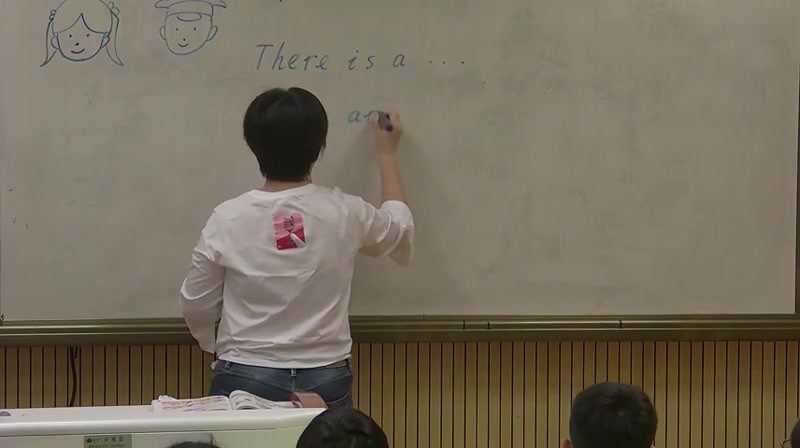 There is a ...
ar